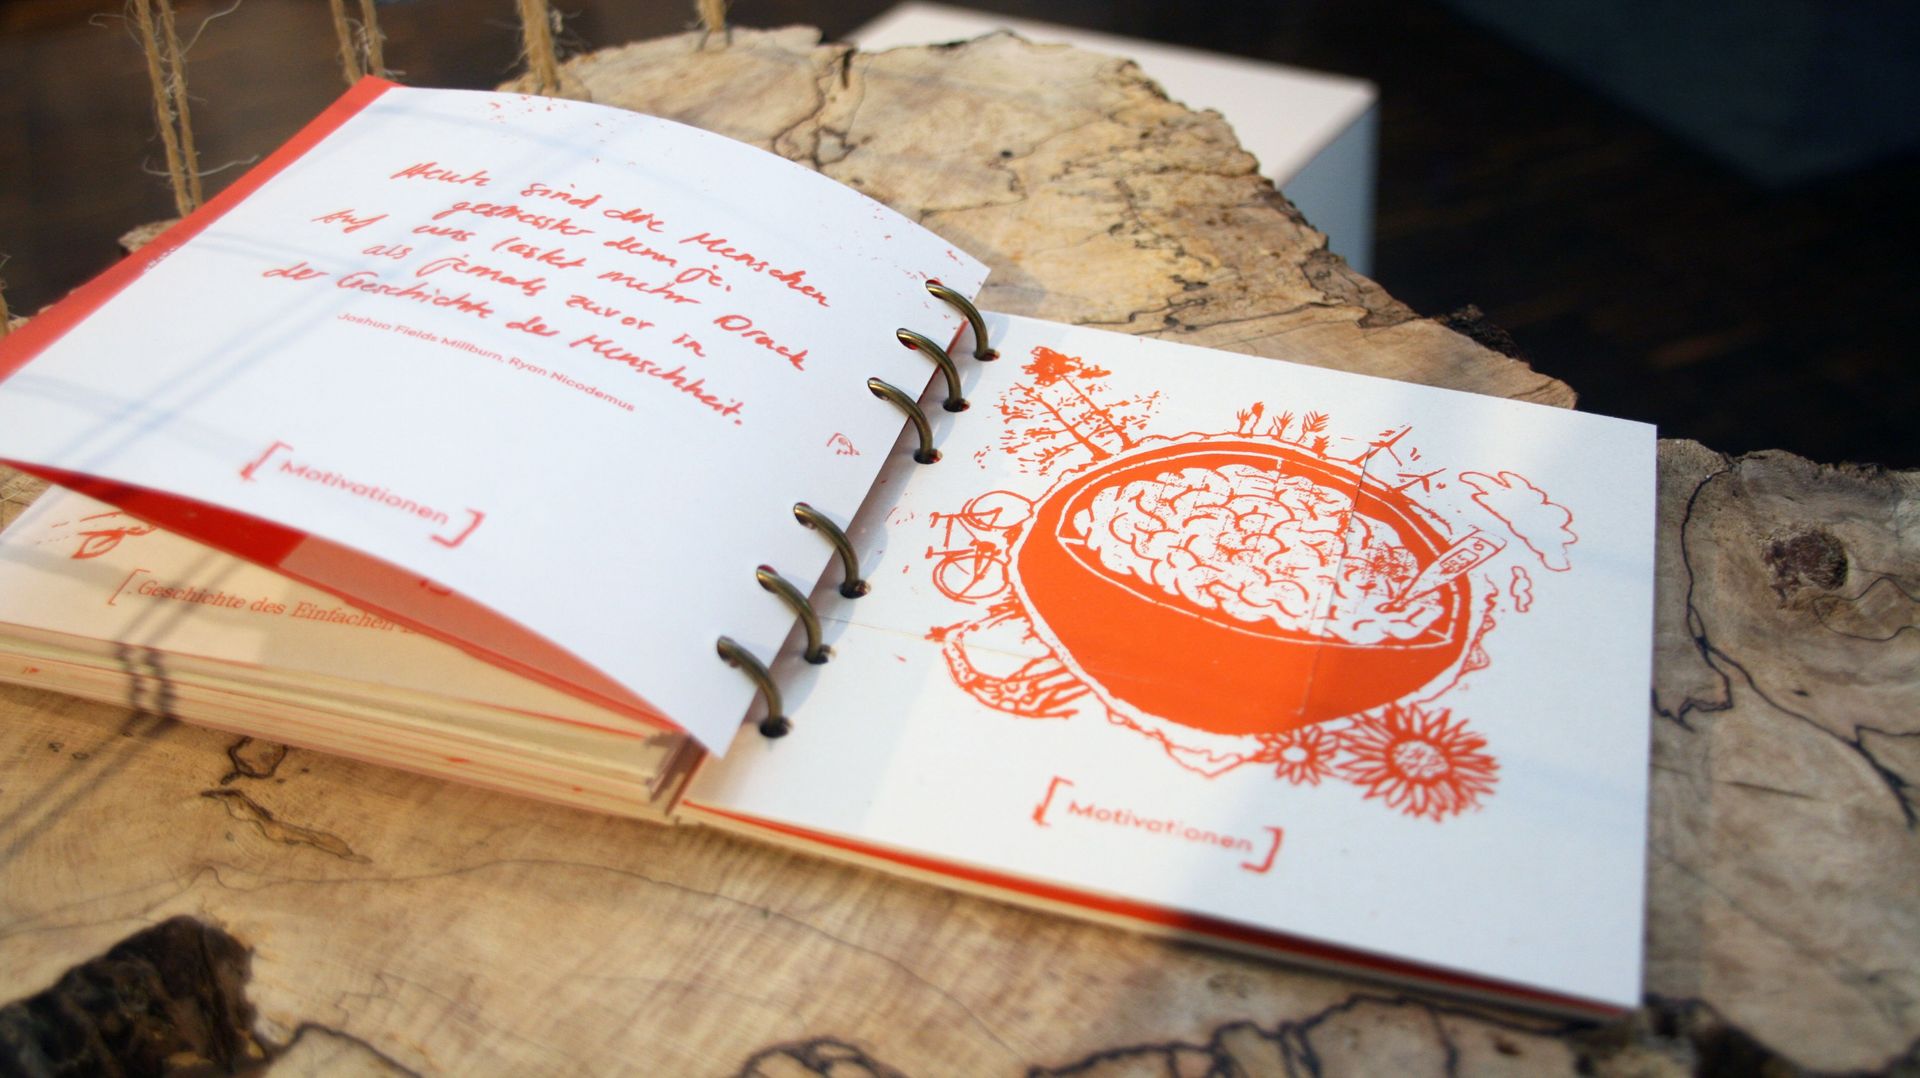 Heute sind die Menschen
gestresster denn je.
Auf uns lastet mehr Druck
als jemals zuvor in
der Geschichte der Menschheit.
Joshua Fields Millburn, Ryan Nicodemus
[Motivationen]
[Geschichte des Einfachen
[Motivationen]